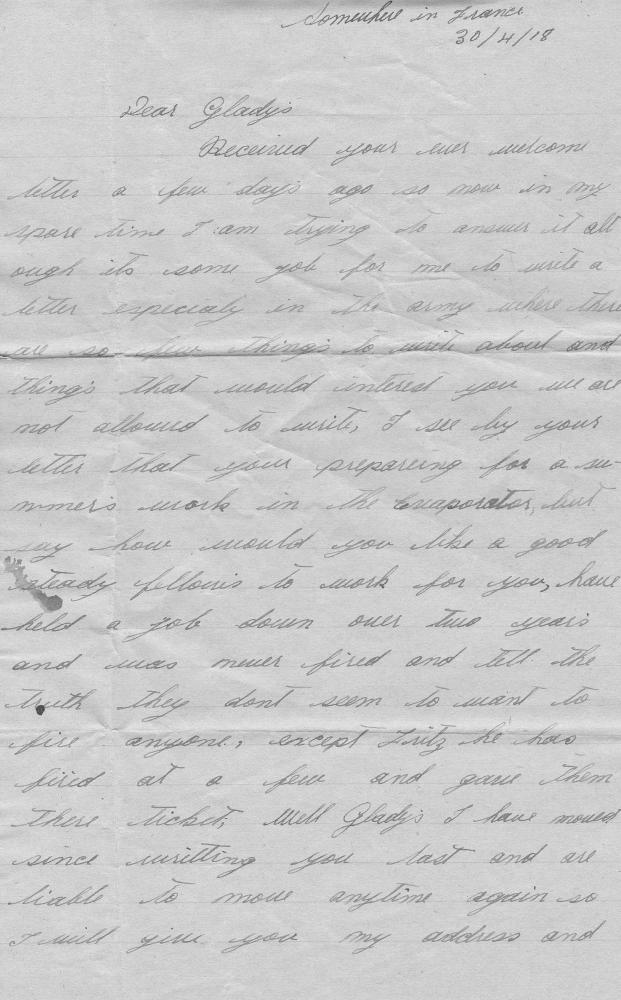 Somewhere in France
30/4/18
Dear Gladys
Received your ever welcome
letter a few days ago so now in my
spare time I am trying to answer it alt
ough its some job for me to write a
letter especialy in the army where there
are so few things to write about and
things that would interest you we are
not allowed to write, I see by your
letter that your prepareing for a su-
mmers work in the Evaporator, but
say how would you like a good
steady fellows to work for you, have
held a job down over two years
and was never fired and tell the
truth they dont seem to want to
fire anyone, except Fritz he has
fired at a few and gave them
there ticket, Well Gladys I have moved
since writting you last and are
liable to move anytime again so
I will give you my address and